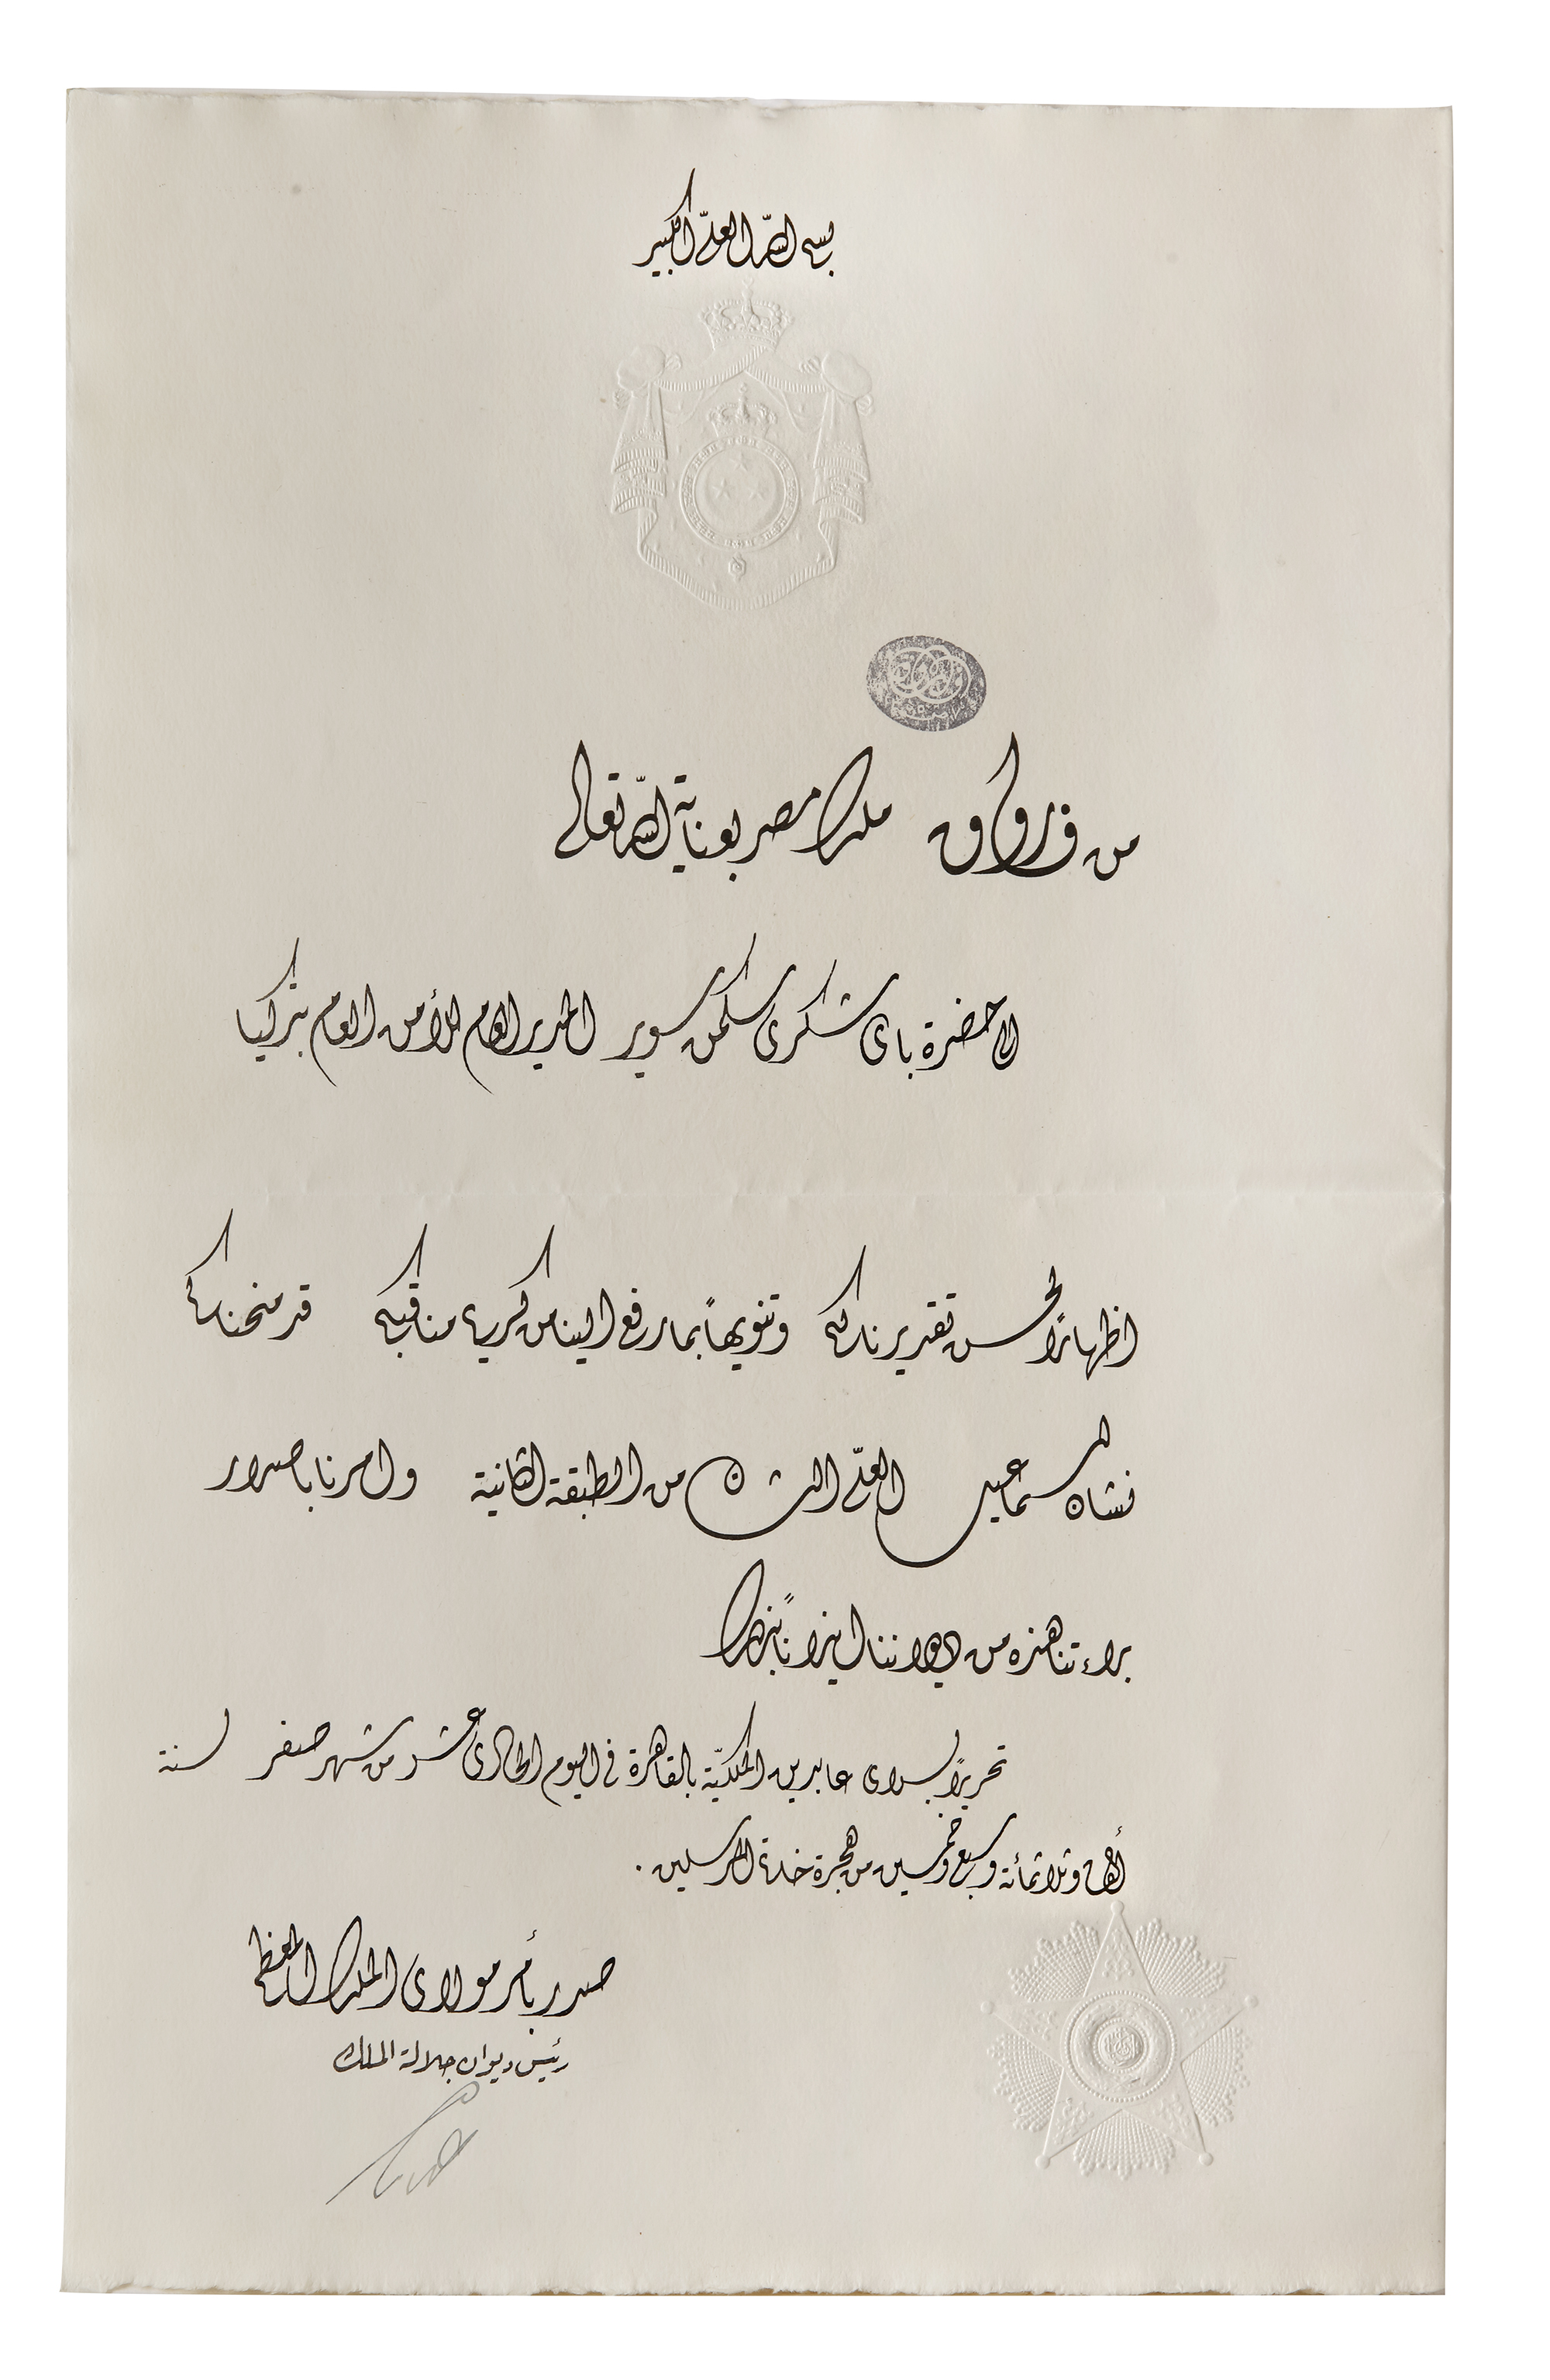 بسم الله العلىّ الكبير
من فاروق ملك مصر بعناية الله تعالى
الى حضرة باى شكرى سكمن سوير المدير العام للأمن العام بتركيا
اظهارًا لحسن تقديرنا لكم وتنويهاً بما رفع الينا من كريم مناقبكم قد منحناكم
نشان اسماعيل العلىّ الشان من الطبقة الثانية وامرنا باصدار
براءتنا هذه من ديواننا ايذانًا بذلك
تحريرًا بسراى عابدين الملكيّة بالقاهرة فى اليوم الحادى عشر من شهر صفر لسنة
ألف وثلاثمائة وسبع وخمسين من هجرة خاتم المرسلين .
صدر بأمر مولاى الملك المعظم
رئيس ديوان جلالة الملك